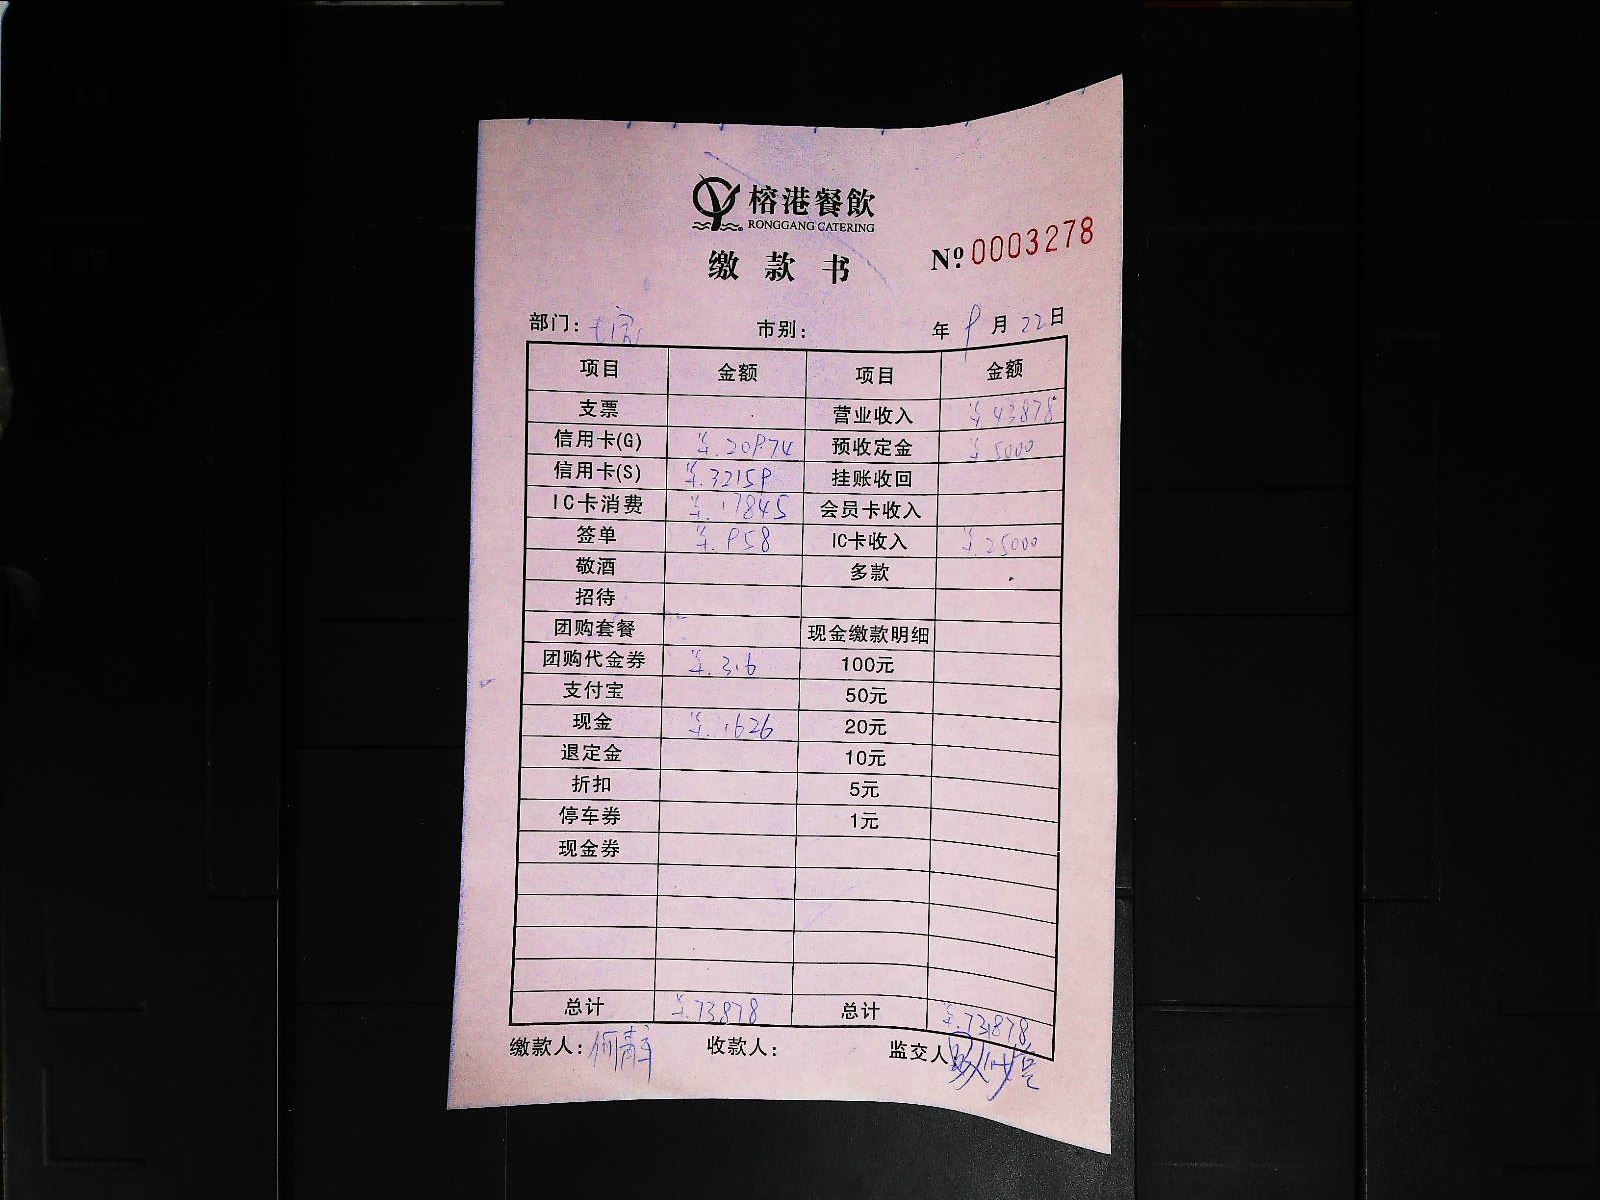 榕港餐飲
RONGGANG CATERING
缴款书 Nº 0003278
部门: 市别: 年 9 月 22 日
项目 金额 项目 金额
支票 营业收入 ¥.43878
信用卡(G) ¥.20974 预收定金 ¥.5000
信用卡(S) ¥.32159 挂账收回
IC卡消费 ¥.17845 会员卡收入
签单 ¥.958 IC卡收入 ¥.25000
敬酒 多款
招待
团购套餐 现金缴款明细
团购代金券 ¥.316 100元
支付宝 50元
现金 ¥.1626 20元
退定金 10元
折扣 5元
停车券 1元
现金券
总计 ¥.73878 总计 ¥.73878
缴款人: 收款人: 监交人